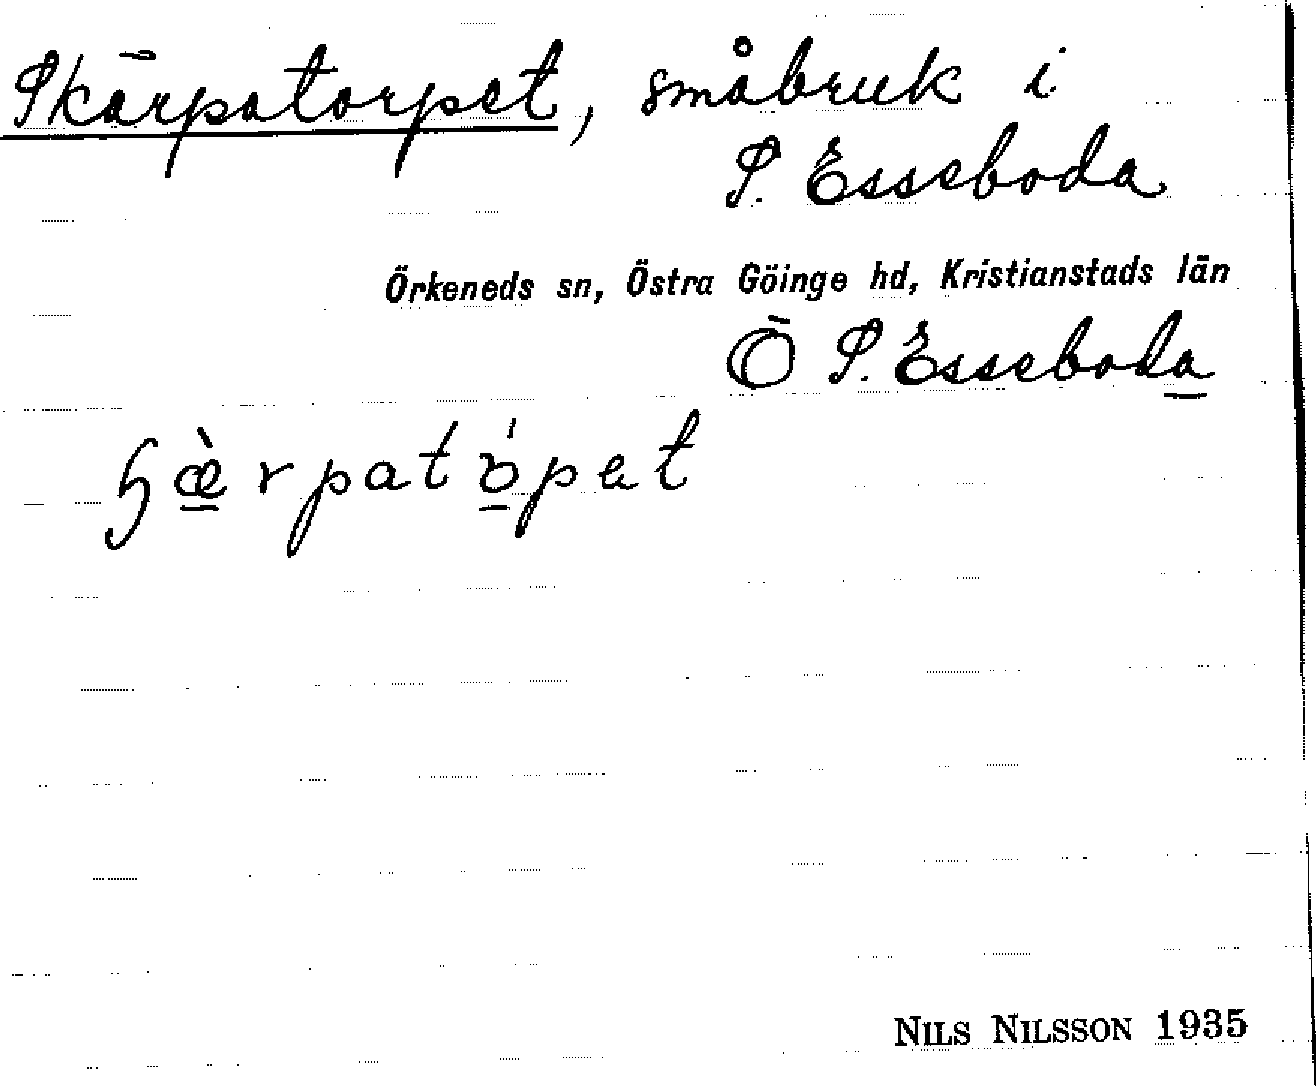 Skärpatorpet, småbruk i
S. Esseboda
Örkeneds sn, Östra Göinge hd, Kristianstads län
Ö S. Esseboda
ɧæ̀rpatópet
NILS NILSSON 1935